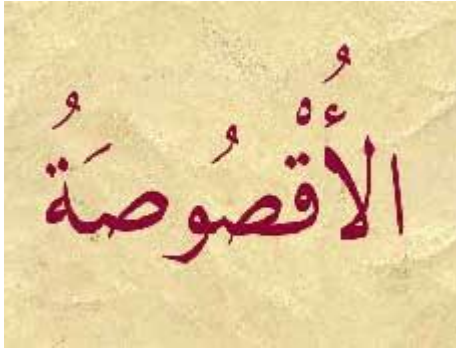 الأُقْصُوصَةُ